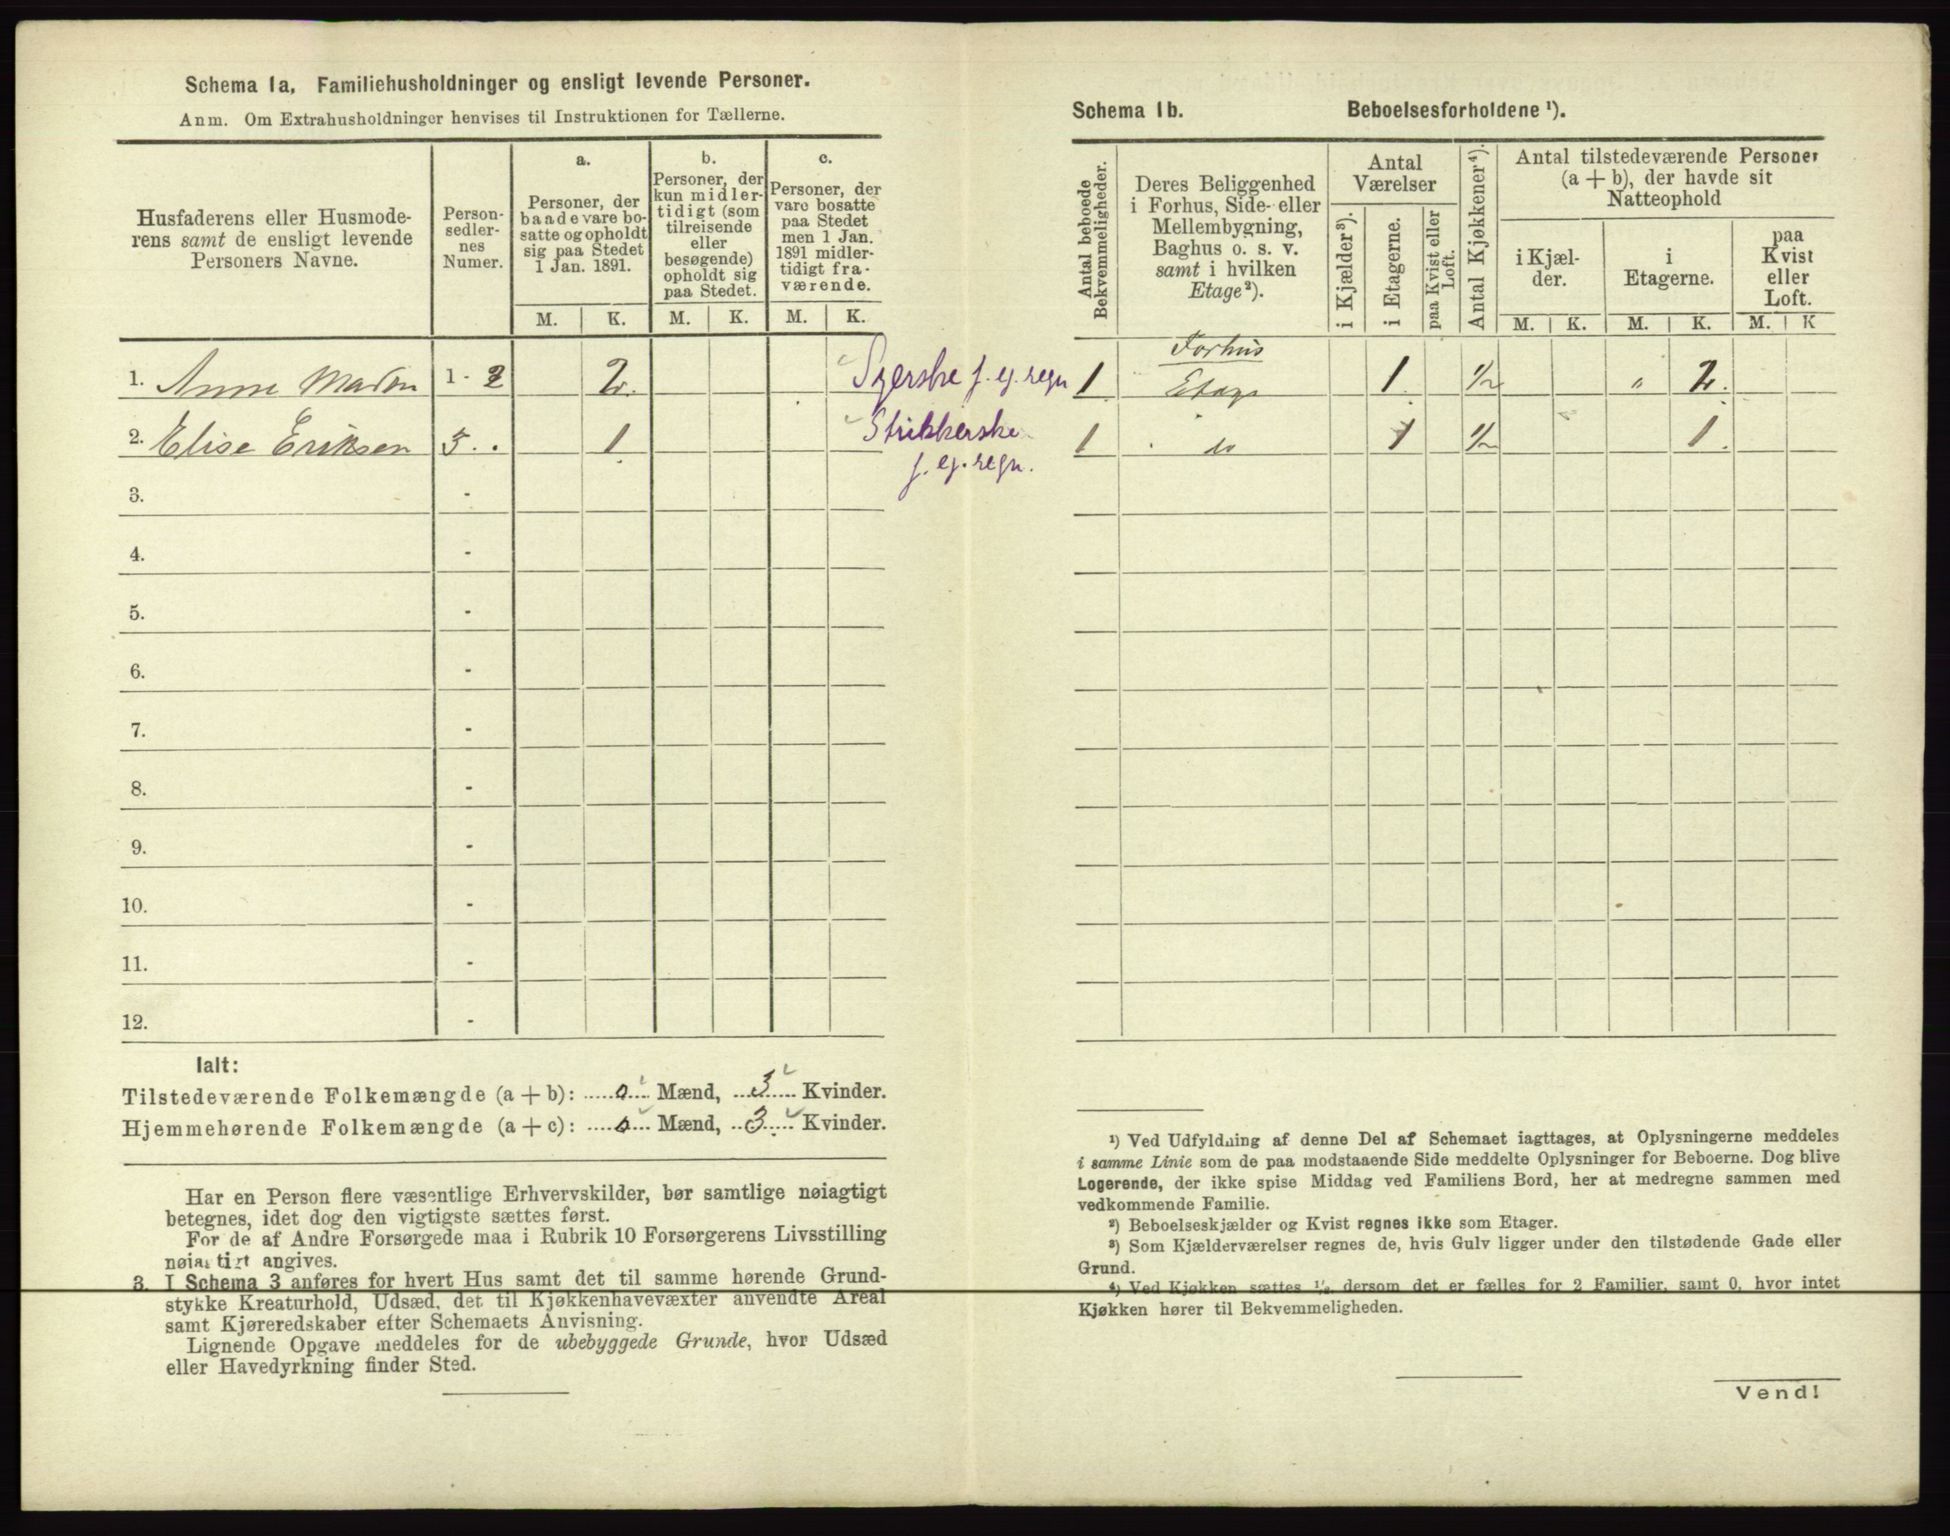 Schema 1a, Familiehusholdninger og ensligt levende Personer.
Anm. Om Extrahusholdninger henvises til Instruktionen for Tællerne.
Husfaderens eller Husmode-
rens samt de ensligt levende
Personers Navne.
Person-
sedler-
nes
Numer.
a.
Personer, der
baade vare bo-
satte og opholdt
sig paa Stedet
1 Jan. 1891.
b.
Personer, der
kun midler-
tidigt (som
tilreisende
eller
besøgende)
opholdt sig
paa Stedet.
c.
Personer, der
vare bosatte
paa Stedet
men 1 Jan.
1891 midler-
tidigt fra-
værende.
M. K. M. K. M. K.
1. Anne 1 - 2 2. Syerske f. eg. regn
2. Elise Eriksen 3 . . 1 Strikkerske
f. eg. regn.
3. -
4. -
5. -
6. -
7. -
8. -
9. -
10. -
11. -
12. -
Ialt:
Tilstedeværende Folkemængde (a + b): 0 Mænd, 3 Kvinder.
Hjemmehørende Folkemængde (a + c): 0 Mænd, 3 Kvinder.
Har en Person flere væsentlige Erhvervskilder, bør samtlige nøiagtigt
betegnes, idet dog den vigtigste sættes først.
For de af Andre Forsørgede maa i Rubrik 10 Forsørgerens Livsstilling
nøiagtigt angives.
3. I Schema 3 anføres for hvert Hus samt det til samme hørende Grund-
stykke Kreaturhold, Udsæd, det til Kjøkkenhavevæxter anvendte Areal
samt Kjøreredskaber efter Schemaets Anvisning.
Lignende Opgave meddeles for de ubebyggede Grunde, hvor Udsæd
eller Havedyrkning finder Sted.
Schema 1b. Beboelsesforholdene ¹).
Antal beboede
Bekvemmeligheder.
Deres Beliggenhed
i Forhus, Side- eller
Mellembygning,
Baghus o. s. v.
samt i hvilken
Etage²).
Antal
Værelser
i Kjælder³).
i Etagerne.
paa Kvist eller
Loft.
Antal Kjøkkener⁴).
Antal tilstedeværende Personer
(a + b), der havde sit
Natteophold
i Kjæl-
der.
i
Etagerne.
paa
Kvist
eller
Loft.
M. K. M. K. M. K
Forhus
1 Etage 1 ½ " 2.
1 do 1 ½ 1.
¹) Ved Udfyldning af denne Del af Schemaet iagttages, at Oplysningerne meddeles
i samme Linie som de paa modstaaende Side meddelte Oplysninger for Beboerne. Dog blive
Logerende, der ikke spise Middag ved Familiens Bord, her at medregne sammen med
vedkommende Familie.
²) Beboelseskjælder og Kvist regnes ikke som Etager.
³) Som Kjælderværelser regnes de, hvis Gulv ligger under den tilstødende Gade eller
Grund.
⁴) Ved Kjøkken sættes ½, dersom det er fælles for 2 Familier, samt 0, hvor intet
Kjøkken hører til Bekvemmeligheden.
Vend!